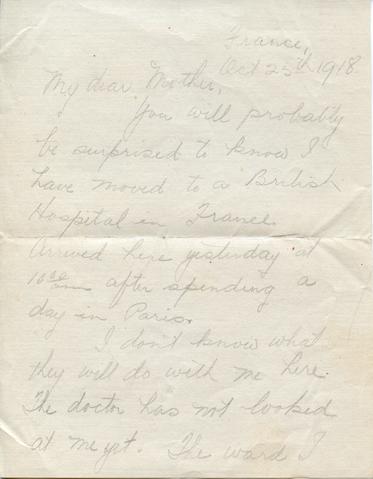 France,
Oct 25th 1918.
My dear Mother,
You will probably
be surprised to know I
have moved to a British
Hospital in France.
Arrived here yesterday at
after spending a
day in Paris.
I don't know what
they will do with me here.
The doctor has not looked
at me yet. The ward I